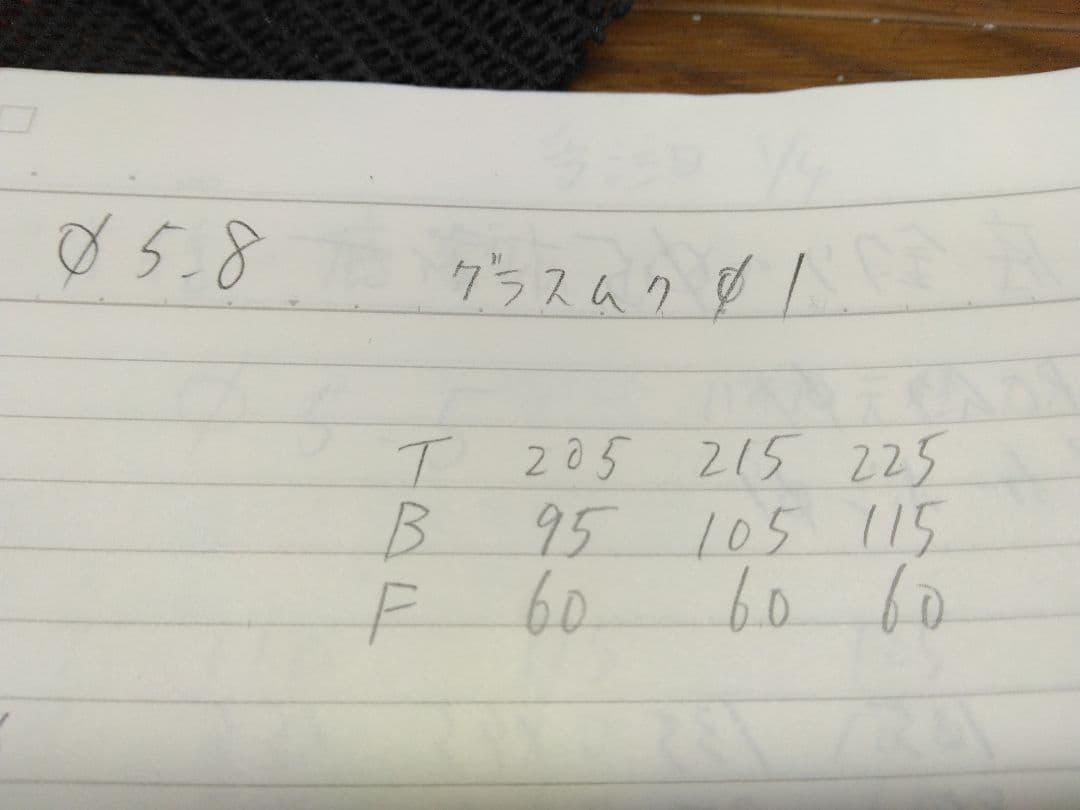 φ5.8 グラスムク φ1
T 205 215 225
B 95 105 115
F 60 60 60